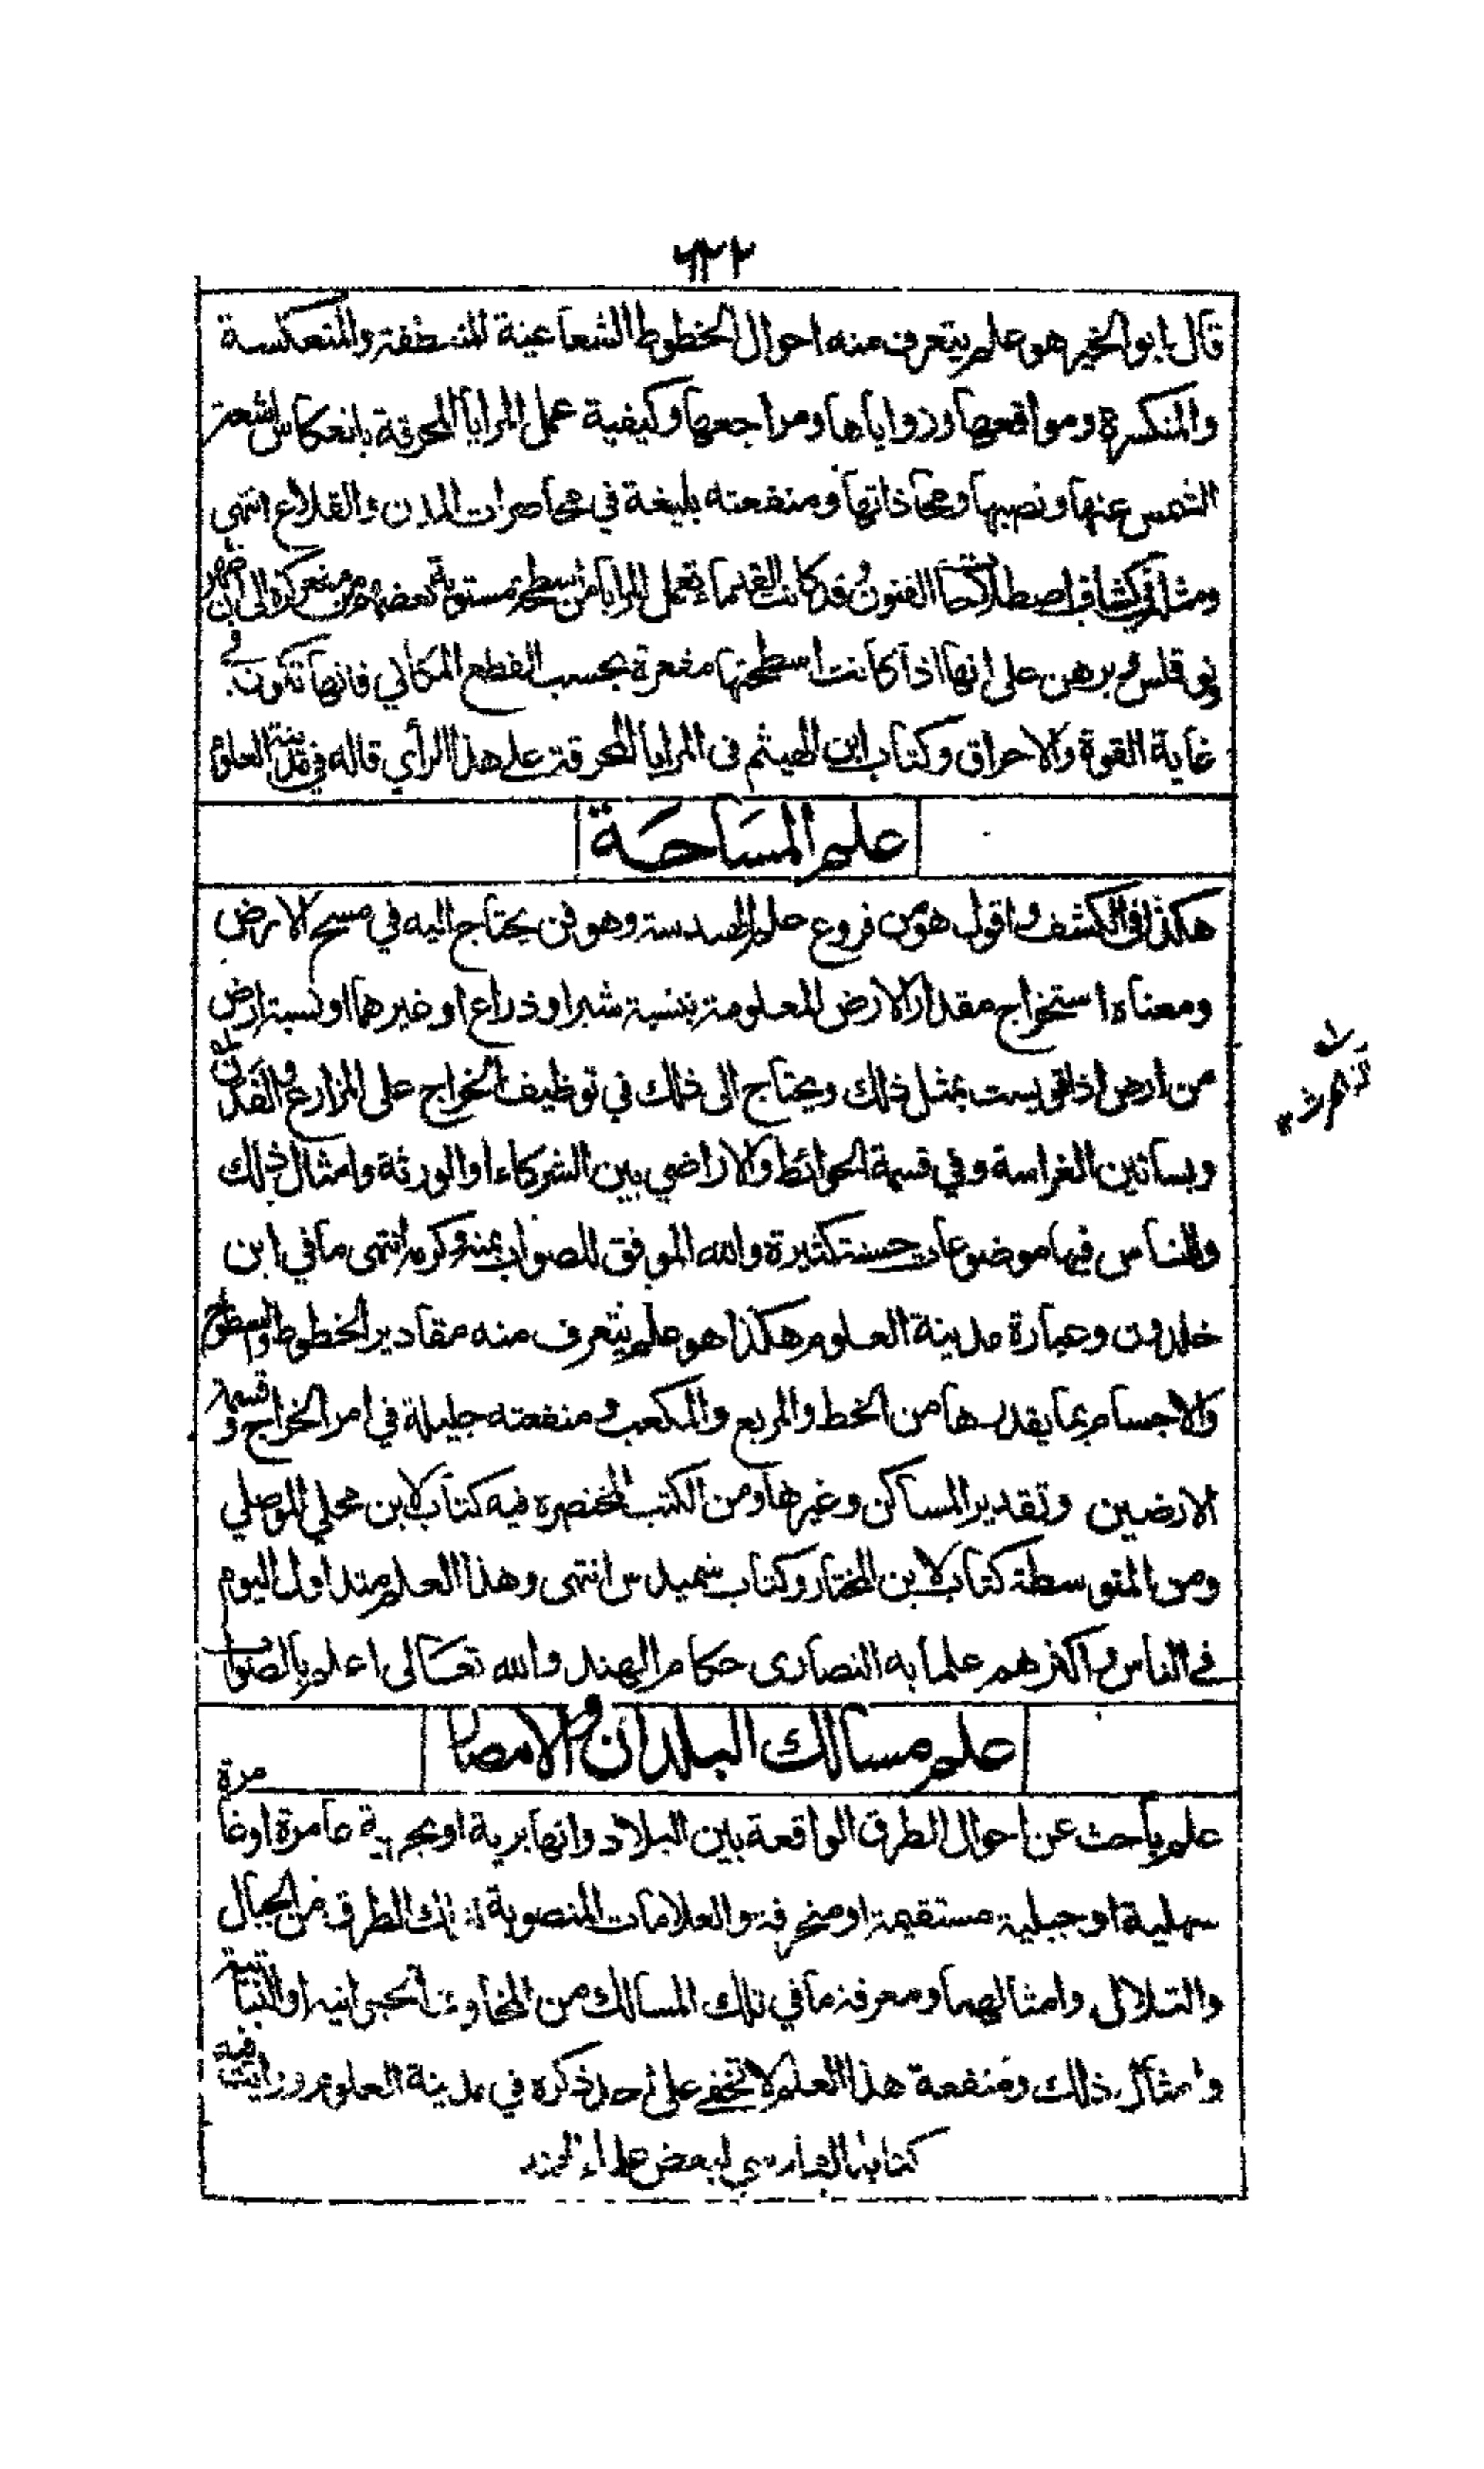 ٦٢٢
قال ابو الخير هو علم يتعرف منه احوال الخطوط الشعاعية المنعطفة والمنعكسة
والمنكسرة ومواقعها وزواياها ومراجعها وكيفية عمل المرايا المحرقة بانعكاس اشعة
الشمس عنها ونصبها ومحاذاتها ومنفعته بليغة في محاصرات المدن والقلاع انتهى
ومثله في كشاف اصطلاحات الفنون وقد كانت القدماء تعمل المرايا من اسطحة مستوية وبعضهم من مقعر كرة الى ان ظهر
ديوقلس وبرهن على انها اذا كانت اسطحتها مقعرة بحسب القطع المكافي فانها تكون في
غاية القوة والاحراق وكتاب ابن الهيثم في المرايا المحرقة على هذا الرأي قاله في مدينة العلوم
علم المساحة
هكذا في الكشف واقول هو من فروع علم الهندسة وهو فن يحتاج اليه في مسح الارض
ومعناه استخراج مقدار الارض المعلومة بنسبة شبر او ذراع او غيرهما او نسبة ارض
من ارض اذا قويست بمثل ذلك ويحتاج الى ذلك في توظيف الخراج على المزارع والفدن
وبساتين الغراسة وفي قسمة الحوائط والاراضي بين الشركاء او الورثة وامثال ذلك
وللناس فيها موضوعات حسنة كثيرة والله الموفق للصواب بمنه وكرمه انتهى ما في ابن
خلدون وعبارة مدينة العلوم هكذا هو علم يتعرف منه مقادير الخطوط والسطوح
والاجسام بما يقدرها من الخط والمربع والمكعب ومنفعته جليلة في امر الخراج وقسمة
الارضين وتقدير المساكن وغيرها ومن الكتب المختصرة فيه كتاب لابن محلي الموصلي
ومن المتوسطة كتاب لابن المختار وكتاب شميدس انتهى وهذا العلم متداول اليوم
في الناس واكثرهم علما به النصارى حكام الهند والله تعالى اعلم بالصواب
علم مسالك البلدان والامصار
علم باحث عن احوال الطرق الواقعة بين البلاد وانها برية او بحرية عامرة او غامرة
سهلية او جبلية مستقيمة او منحرفة والعلامات المنصوبة لتلك الطرق من الجبال
والتلال وامثالهما ومعرفة ما في تلك المسالك من المخاوف الحيوانية او النباتية
وامثال ذلك ومنفعة هذا العلم لا تخفى على احد ذكره في مدينة العلوم ورايت فيه
كتابا بالفارسي لبعض علماء الهند